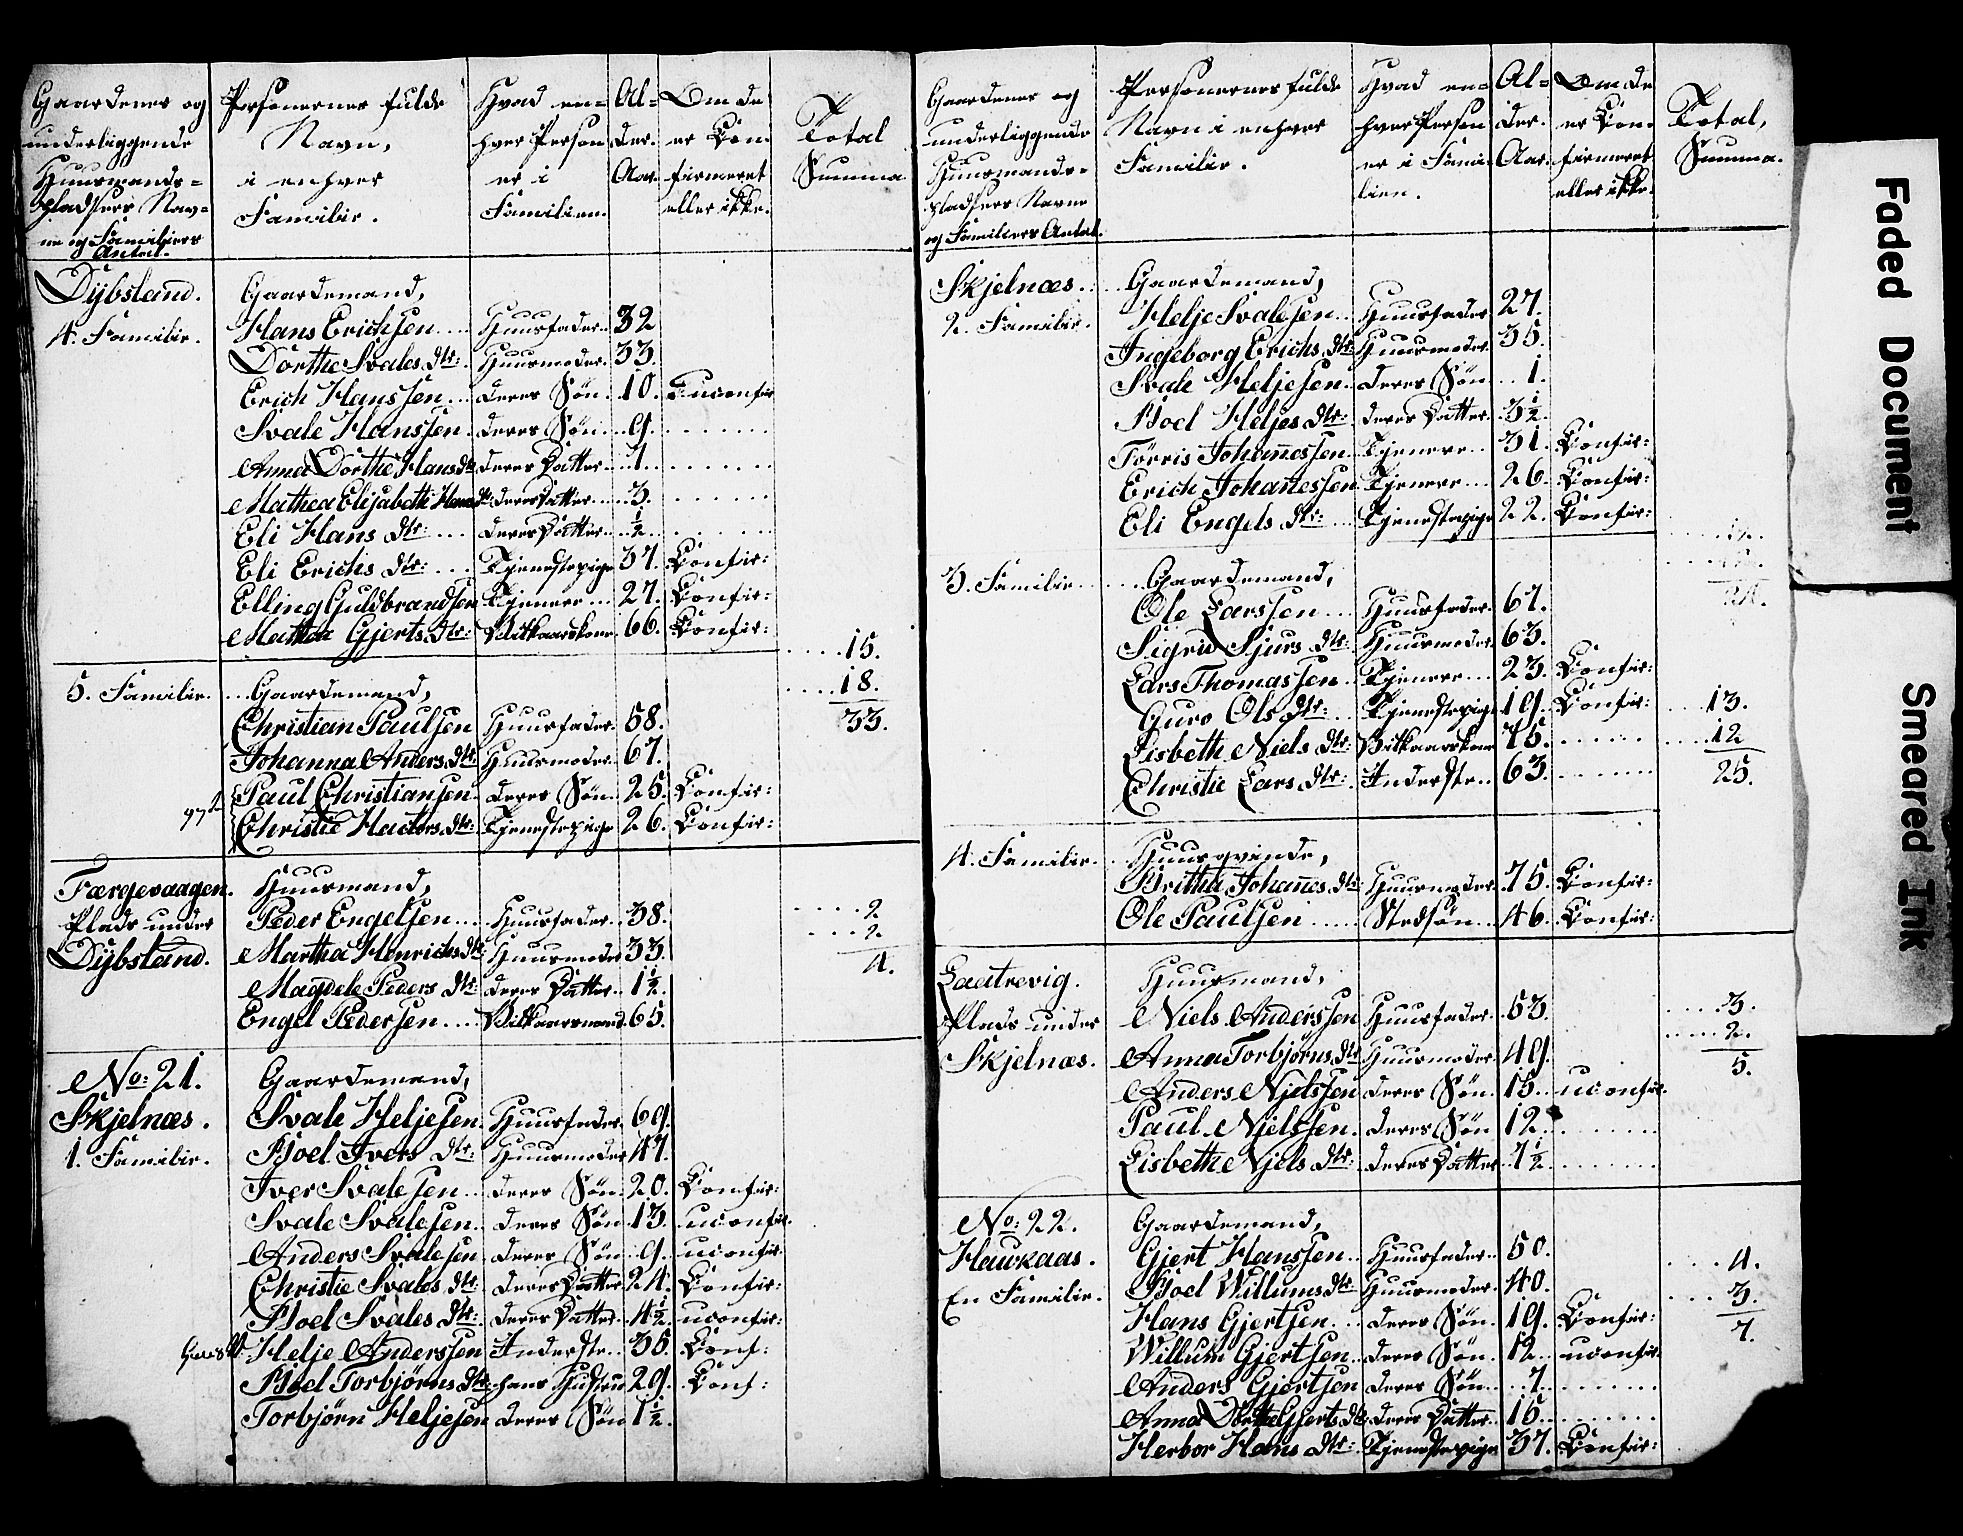 Gaardenes og
underliggende
Huusmands=
pladsers Nav=
ne og Familiers
Antal.
Personernes fulde
Navn,
i enhver
Familie.
Hvad en=
hver Person
er i
Familien.
Al=
der.
Aar.
Om de
er Con-
firmeret
eller ikke.
Total
Summa
Dybsland. Gaardemand,
4. Familie. Hans Erichsen Huusfader 32
Dorthe Svales Dtr: Huusmoder. 33.
Erich Hanssen deres Søn. 10. uconfir
Svale Hanssen. deres Søn 9.
Anna Dorthe Hans Dtr deres Datter 7.
Mathea Elisabeth Hans Dtr: deres Datter 3.
Eli Hans Dtr: deres Datter ½
Eli Erichs Dtr: Tjenestepige 37. Confir:
Elling Guldbrandsen Tjenere 27. Confir:
Martha Gjerts Dtr: Vilkaarskone 66. Confir:
15.
18.
33.
5. Familie. Gaardemand,
Christian Paulsen Huusfader 58.
Johanna Anders Dtr. Huusmoder 67.
Paul Christiansen deres Søn. 25. Confir:
Christie Hactors Dtr: Tjenestepige 26. Confir:
Færgevaagen. Huusmand,
Plads under Peder Engelsen Huusfader 38.
Dybsland. Martha Henrichs Dtr Huusmoder 33.
Magdele Peders Dtr: deres Datter 1½.
Engel Pedersen Vilkaarsmand 65.
2
2
4.
No: 21. Gaardemand,
Skjelnæs. Svale Heljesen Huusfader 69.
1. Familie. Boel Ivers Dtr: Huusmoder 47.
Iver Svalesen deres Søn 20. Confir:
Svale Svalesen. deres Søn 13. uconfir.
Anders Svalesen deres Søn 9. uconfir
Christie Svales Dtr: deres Datter 24. Confir:
Boel Svales Dtr: deres Datter 4½ uconfir:
Helje Anderssen Inderste 35. Conf:
Boel Torbjørns Dtr: hans Hustru 29. Conf:
Torbjørn Heljesen deres Søn 1½.
Gaardenes og
underliggende
Huusmands=
pladsers Navne
og Familiers Antal.
Personernes fulde
Navn i enhver
Familie.
Hvad en=
hver Person
er i Fami-
lien.
Al=
der.
Aar.
Om de
er Con-
firmeret
eller ikke.
Total,
Summa.
Skjelnæs. Gaardemand,
2. Familie. Helje Svalesen Huusfader 27.
Ingeborg Erichs Dtr: Huusmoder 35.
Svale Heljesen deres Søn 1.
Boel Heljes Dtr: deres Datter 3½.
Torris Johannessen Tjenere 31. Confir:
Erich Johannessen Tjenere 26. Confir:
Eli Engels Dtr: Tjenestepige 22. Confir:
3. Familie Gaardemand,
Ole Larssen Huusfader 67.
Sigrid Sjurs Dtr: Huusmoder 63.
Lars Thomassen Tjenere 23. Confir:
Guro Ols Dtr: Tjenestepige 19. Confir:
Lisbeth Niels Dtr: Vilkaarskone 75.
Christie Lars Dtr: Inderste 63.
13.
12
25.
4. Familie. Huusqvinde,
Britha Johannes Dtr: Huusmoder 75. Confir:
Ole Paulsen Stedsøn 46. Confir:
Laatrevig. Huusmand,
Plads under Niels Anderssen Huusfader 53.
Skjelnæs. Anna Torbjørns Dtr Huusmoder 49.
Anders Njelssen deres Søn 15. uconfir.
Paul Njelssen. deres Søn 12.
Lisbeth Njels Dtr: deres Datter 7½
3.
2.
5.
No: 22. Gaardemand,
Haukaas. Gjert Hanssen Huusfader 50.
En Familie. Boel Willums Dtr Huusmoder 40.
Hans Gjertsen deres Søn. 19. Confir:
Willum Gjertsen deres Søn. 12. uconfir.
Anders Gjertsen deres Søn. 7.
Anna Dorthe Gjerts Dtr. deres Datter 15.
Herbor Hans Dtr: Tjenestepige 37. Confir:
4.
3.
7.
Faded Document
Smeared Ink